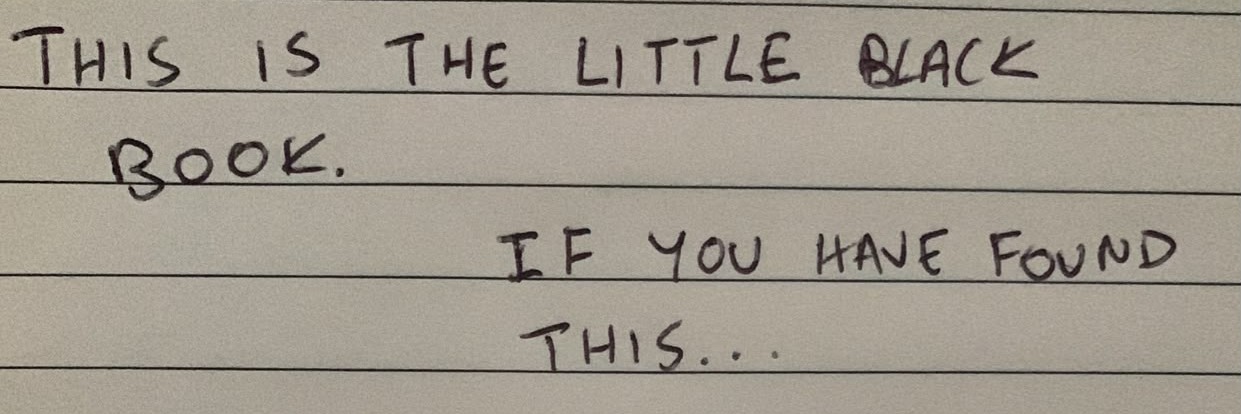 THIS IS THE LITTLE BLACK
BOOK.
IF YOU HAVE FOUND
THIS...